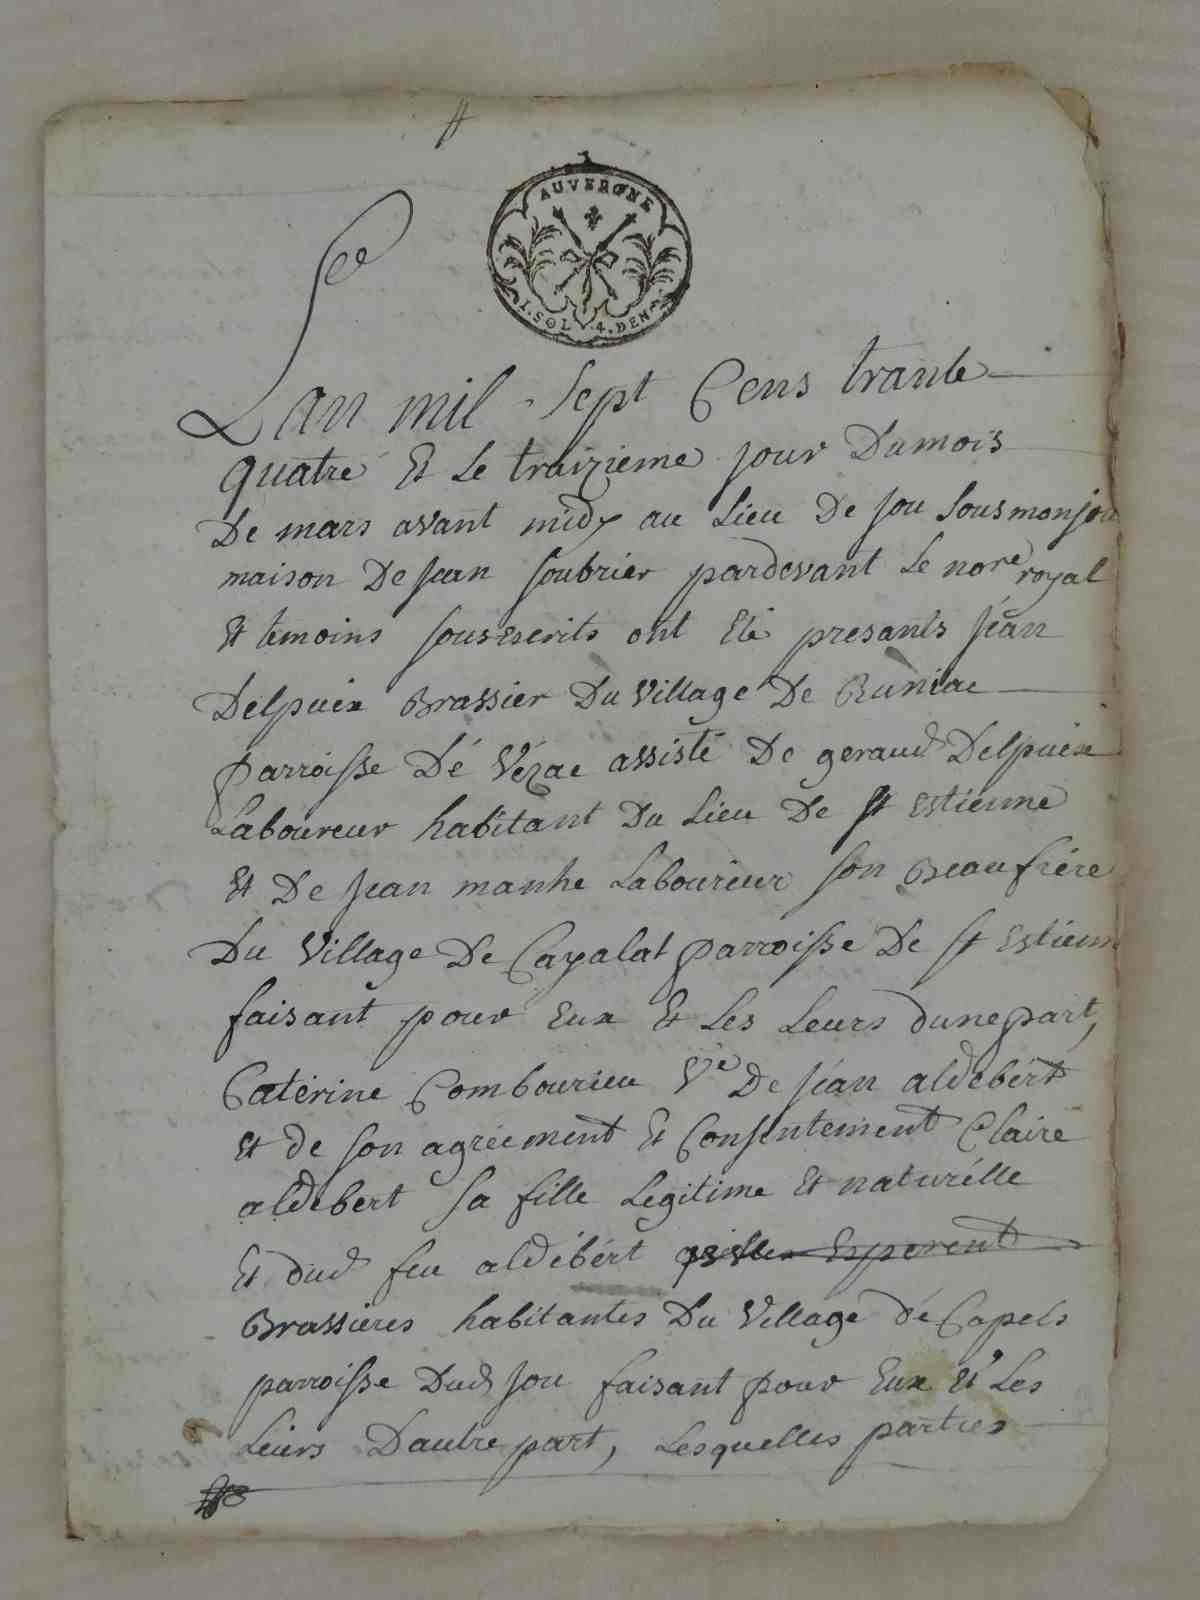 AUVERGNE
1. SOL 4. DEN
Lan mil sept Cens trante
quatre Et Le traizieme jour Du mois
De mars avant midy au Lieu De Jou sousmonjou
maison De Jean soubrier pardevant Le nore royal
Et temoins souserits ont Eté presants Jéan
Delpueix Brassier Du Village De Runiac
parroisse Dé Vézac assisté De geraud Delpueix
Laboureur habitant Du Lieu De St Estienne
Et De Jean manhe Laboureur son Beaufrére
Du Village De Cayalat parroisse De St Estienn
faisant pour Eux Et Les Leurs dune part,
Catérine Combourieu Ve De Jéan aldébért
Et de son agréement Et Consentement Claire
aldébert sa fille Legitime Et naturélle
Et dud feu aldébért Esperent
Brassieres habitantes Du Village dé Capels
parroisse Dud Jou faisant pour Eux Et Les
Leurs Dautre part, Lesquelles parties